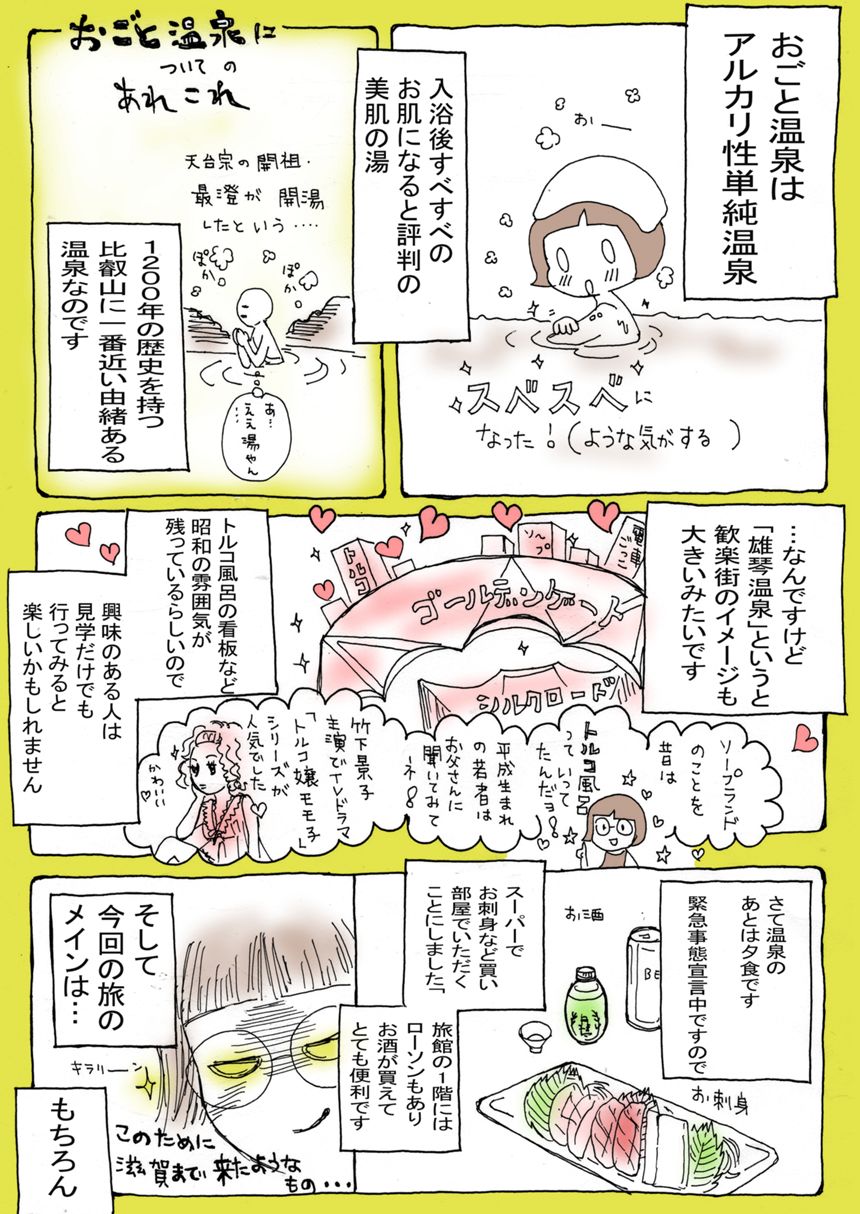 おごと温泉は
アルカリ性単純温泉
おー
入浴後すべすべの
お肌になると評判の
美肌の湯
スベスベに
なった!(ような気がする)
おごと温泉に
ついての
あれこれ
天台宗の開祖・
最澄が開湯
したという‥‥
ぽか
ぽか
あ…
ええ湯やん
…
1200年の歴史を持つ
比叡山に一番近い由緒ある
温泉なのです
…なんですけど
「雄琴温泉」というと
歓楽街のイメージも
大きいみたいです
電車
ごっこ
ソープ
トルコ
ゴールデンゲート
シルクロード
トルコ風呂の看板など
昭和の雰囲気が
残っているらしいので
興味のある人は
見学だけでも
行ってみると
楽しいかもしれません
ソープランド
のことを
昔は
トルコ風呂
っていって
たんだョ!
平成生まれ
の若者は
お父さんに
聞いてみて
ネ!
竹下景子
主演でTVドラマ
「トルコ嬢モモ子」
シリーズが
人気でした
かわいい
さて温泉の
あとは夕食です
緊急事態宣言中ですので
お酒
BE
お刺身
スーパーで
お刺身など買い
部屋でいただく
ことにしました「
旅館の1階には
ローソンもあり
お酒が買えて
とても便利です
そして
今回の旅の
メインは…
キラリーン
このために
滋賀まで来たような
もの・・・
もちろん